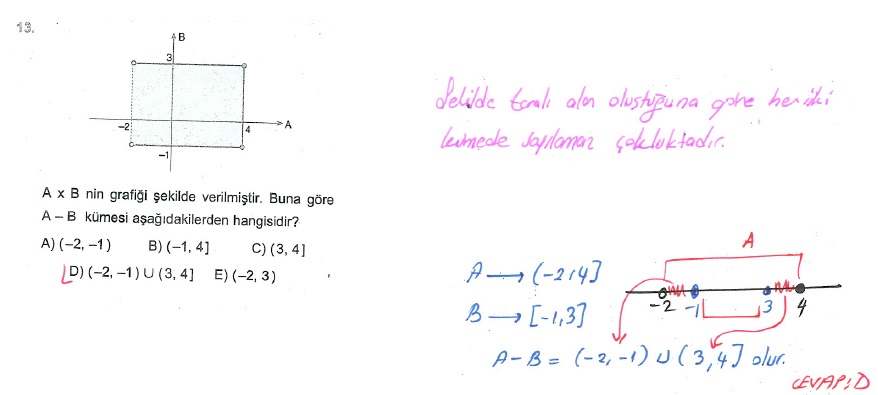 13.
B
3
-2
4
A
-1
A x B nin grafiği şekilde verilmiştir. Buna göre
A – B kümesi aşağıdakilerden hangisidir?
A) (–2, –1) B) (–1, 4] C) (3, 4]
D) (–2, –1) ∪ (3, 4] E) (–2, 3)
Şekilde taralı alan oluştuğuna göre her iki
kümede sayılamaz çokluktadır.
A
A → (-2,4]
-2 -1 3 4
B → [-1,3]
A-B = (-2,-1) ∪ (3,4] olur.
CEVAP:D